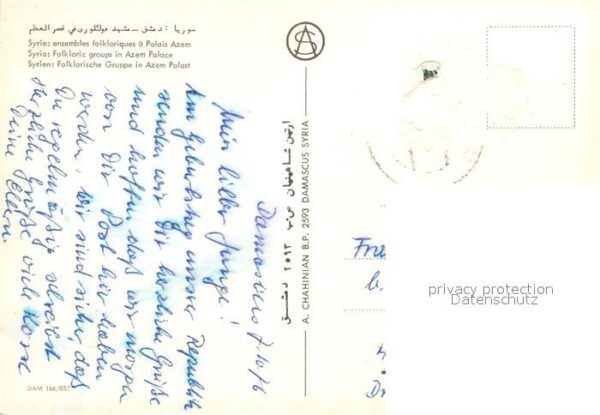 سوريا : دمشق - مشهد فولكلوري في قصر العظم
Syrie: ensembles folkloriques à Palais Azem
Syria: Folkloric groups in Azem Palace
Syrien: Folklorische Gruppe in Azem Palast
Damaskus 7.10.76
Mein lieber Junge!
Am Geburtstag unserer Republik
senden wir Dir herzliche Grüße
und hoffen daß wir morgen
von Dir Post hier haben
werden, wir sind sicher, daß
Du regelmäßig schreibst
Herzliche Grüße viele Küsse
Deine Eltern.
DAM 166/037
ارتين شاهينيان ص.ب ٢٥٩٣ دمشق
A. CHAHINIAN B.P. 2593 DAMASCUS SYRIA
AS
privacy protection
Datenschutz